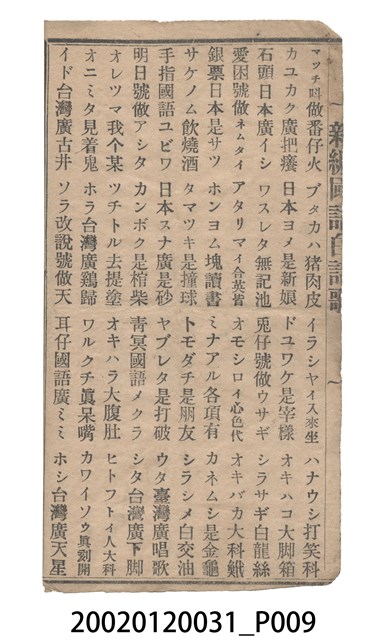 新編國語白話歌
マツチ叫做番仔火 ブタカハ猪肉皮 イラシヤイ入來坐 ハナウシ打笑科
カユカク廣把癢 日本ヨメ是新娘 ドユワケ是宰樣 オキハコ大脚箱
石頭日本廣イシ ワスレタ無記池 兎仔號做ウサギ シラサギ白龍絲
愛困號做ネムタイ アタリマイ合英皆 オモシロイ心色代 オキバカ大科
銀票日本是サツ ホンヨム塊讀書 ミナアル各項有 カネムシ是金龜
サケノム飲燒酒 タマツキ是撞球 トモダチ是朋友 シラシメ白交油
手指國語ユビワ 日本スナ廣是砂 ヤブレタ是打破 ウタ臺灣廣唱歌
明日號做アシタ カンボク是棺柴 靑冥國語メクラ シタ台灣廣下脚
オレツマ我个某 ツチトル去提塗 オキハラ大腹肚 ヒトフトイ人大科
オニミタ見着鬼 ホラ台灣廣鷄歸 ワルクチ眞呆嘴 カワイソウ眞刻開
イド台灣廣古井 ソラ改說號做天 耳仔國語廣ミミ ホシ台灣廣天星
20020120031_P009